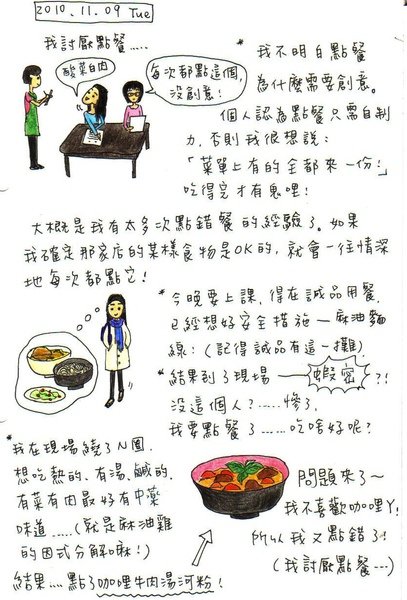 2010.11.09 Tue
我討厭點餐.....
酸菜白肉
每次都點這個,
沒創意!
*我不明白點餐
為什麼需要創意。
個人認為點餐只需自制
力,否則我很想說:
「菜單上有的全都來一份!」
吃得完才有鬼哩!
大概是我有太多次點錯餐的經驗了。如果
我確定那家店的某樣食物是OK的,就會一往情深
地每次都點它!
*今晚要上課,得在誠品用餐,
已經想好安全措施—麻油麵
線:(記得誠品有這一攤)
*結果到了現場——蝦密?!
沒這個人?.....慘了,
我要點餐了......吃啥好呢?
*我在現場繞了N圈,
想吃熱的、有湯、鹹的、
有菜有肉最好有中藥
味道.....(就是麻油雞
的因式分解嘛!)
結果....點了咖哩牛肉湯河粉!
問題來了~
我不喜歡咖哩Y!
所以我又點錯了!
(我討厭點餐---)